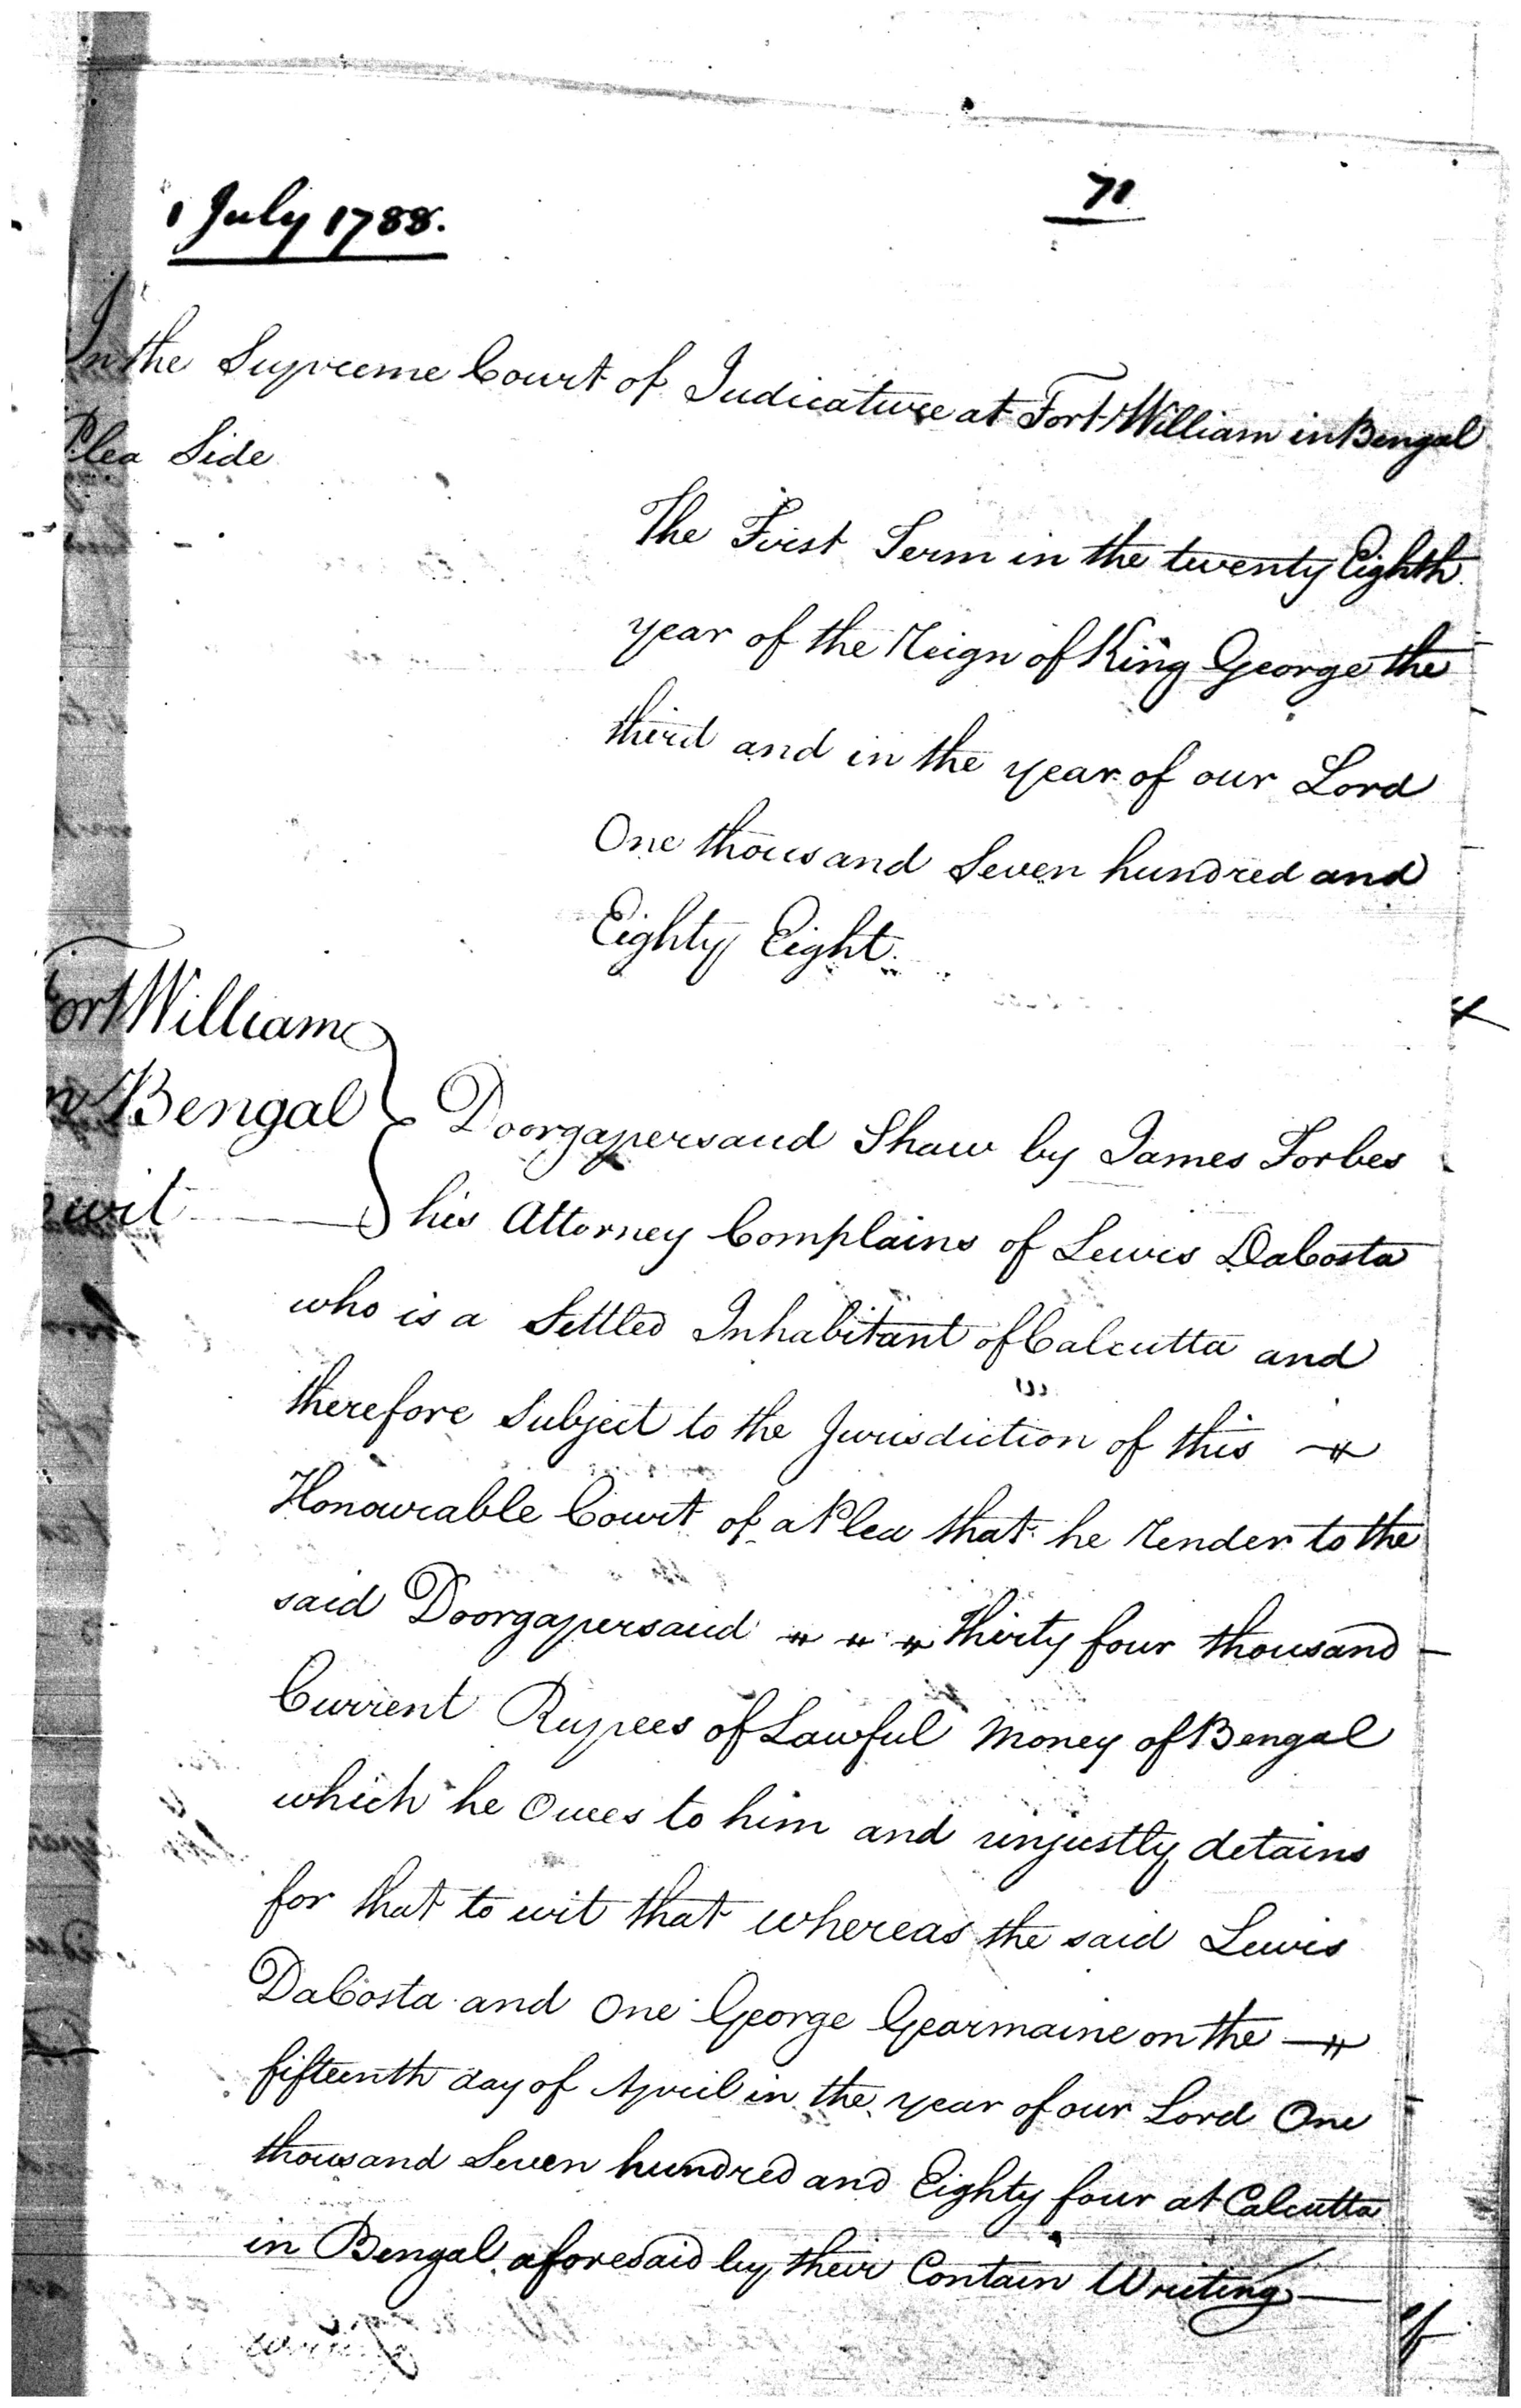 1 July 1788.
71
In the Supreme Court of Judicature at Fort William in Bengal
Plea Side
The First Term in the twenty Eighth
year of the Reign of King George the
third and in the year of our Lord
One thousand Seven hundred and
Eighty Eight.
Fort William
in Bengal
to wit
Doorgapersaud Shaw by James Forbes
his Attorney Complains of Lewis DaCosta
who is a Settled Inhabitant of Calcutta and
therefore Subject to the Jurisdiction of this
Honourable Court of a Plea that he render to the
said Doorgapersaud thirty four thousand
Current Rupees of Lawful Money of Bengal
which he Owes to him and unjustly detains
for that to wit that whereas the said Lewis
DaCosta and One George Gearmaine on the
fifteenth day of April in the year of our Lord One
thousand Seven hundred and Eighty four at Calcutta
in Bengal aforesaid by their Contain Writing
of